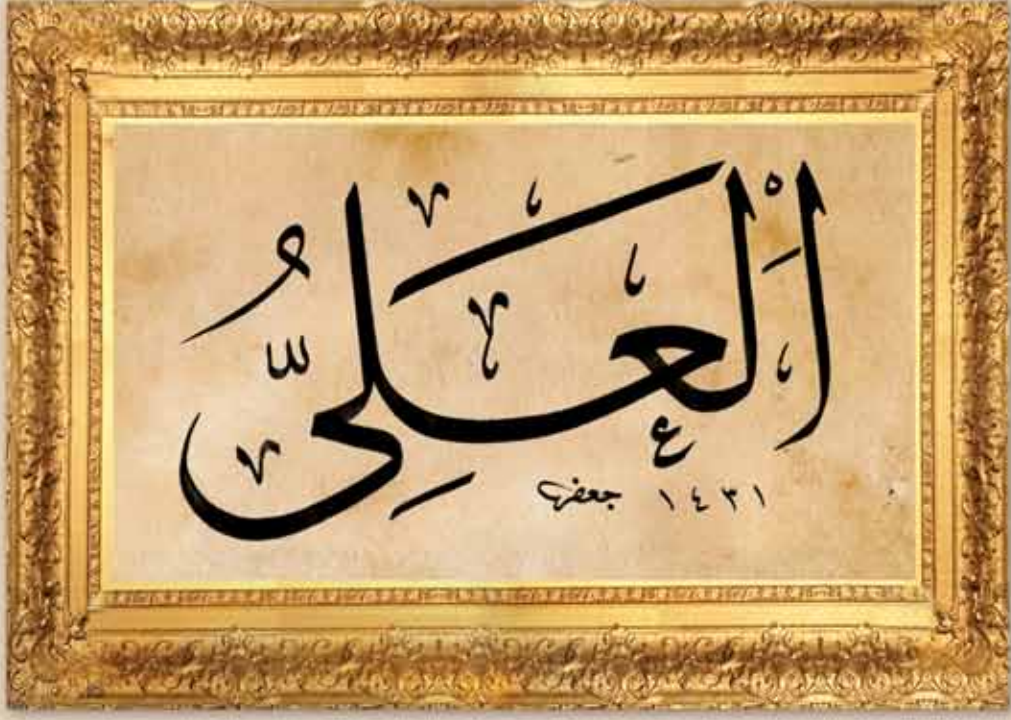 اَلْعَلِيُّ
جعفر ١٤٣١